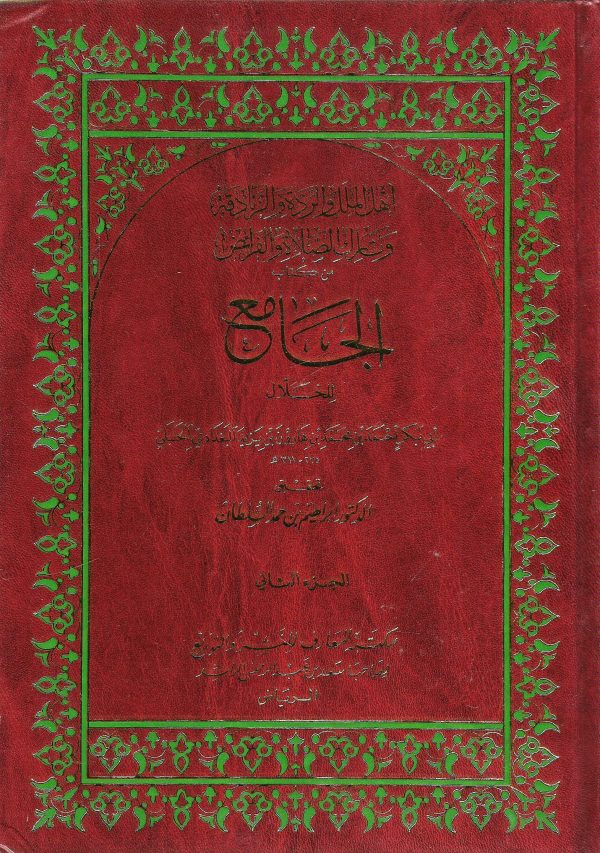 أهل الملل والردة والزنادقة
وتارك الصلاة والفرائض
من كتاب
الجامع
للخلال
أبي بكر أحمد بن محمد بن هارون بن يزيد البغدادي الحنبلي
٣١١ هـ
تحقيق
الدكتور إبراهيم بن حمد السلطان
الجزء الثاني
مكتبة المعارف للنشر والتوزيع
لصاحبها سعد بن عبد الرحمن الراشد
الرياض